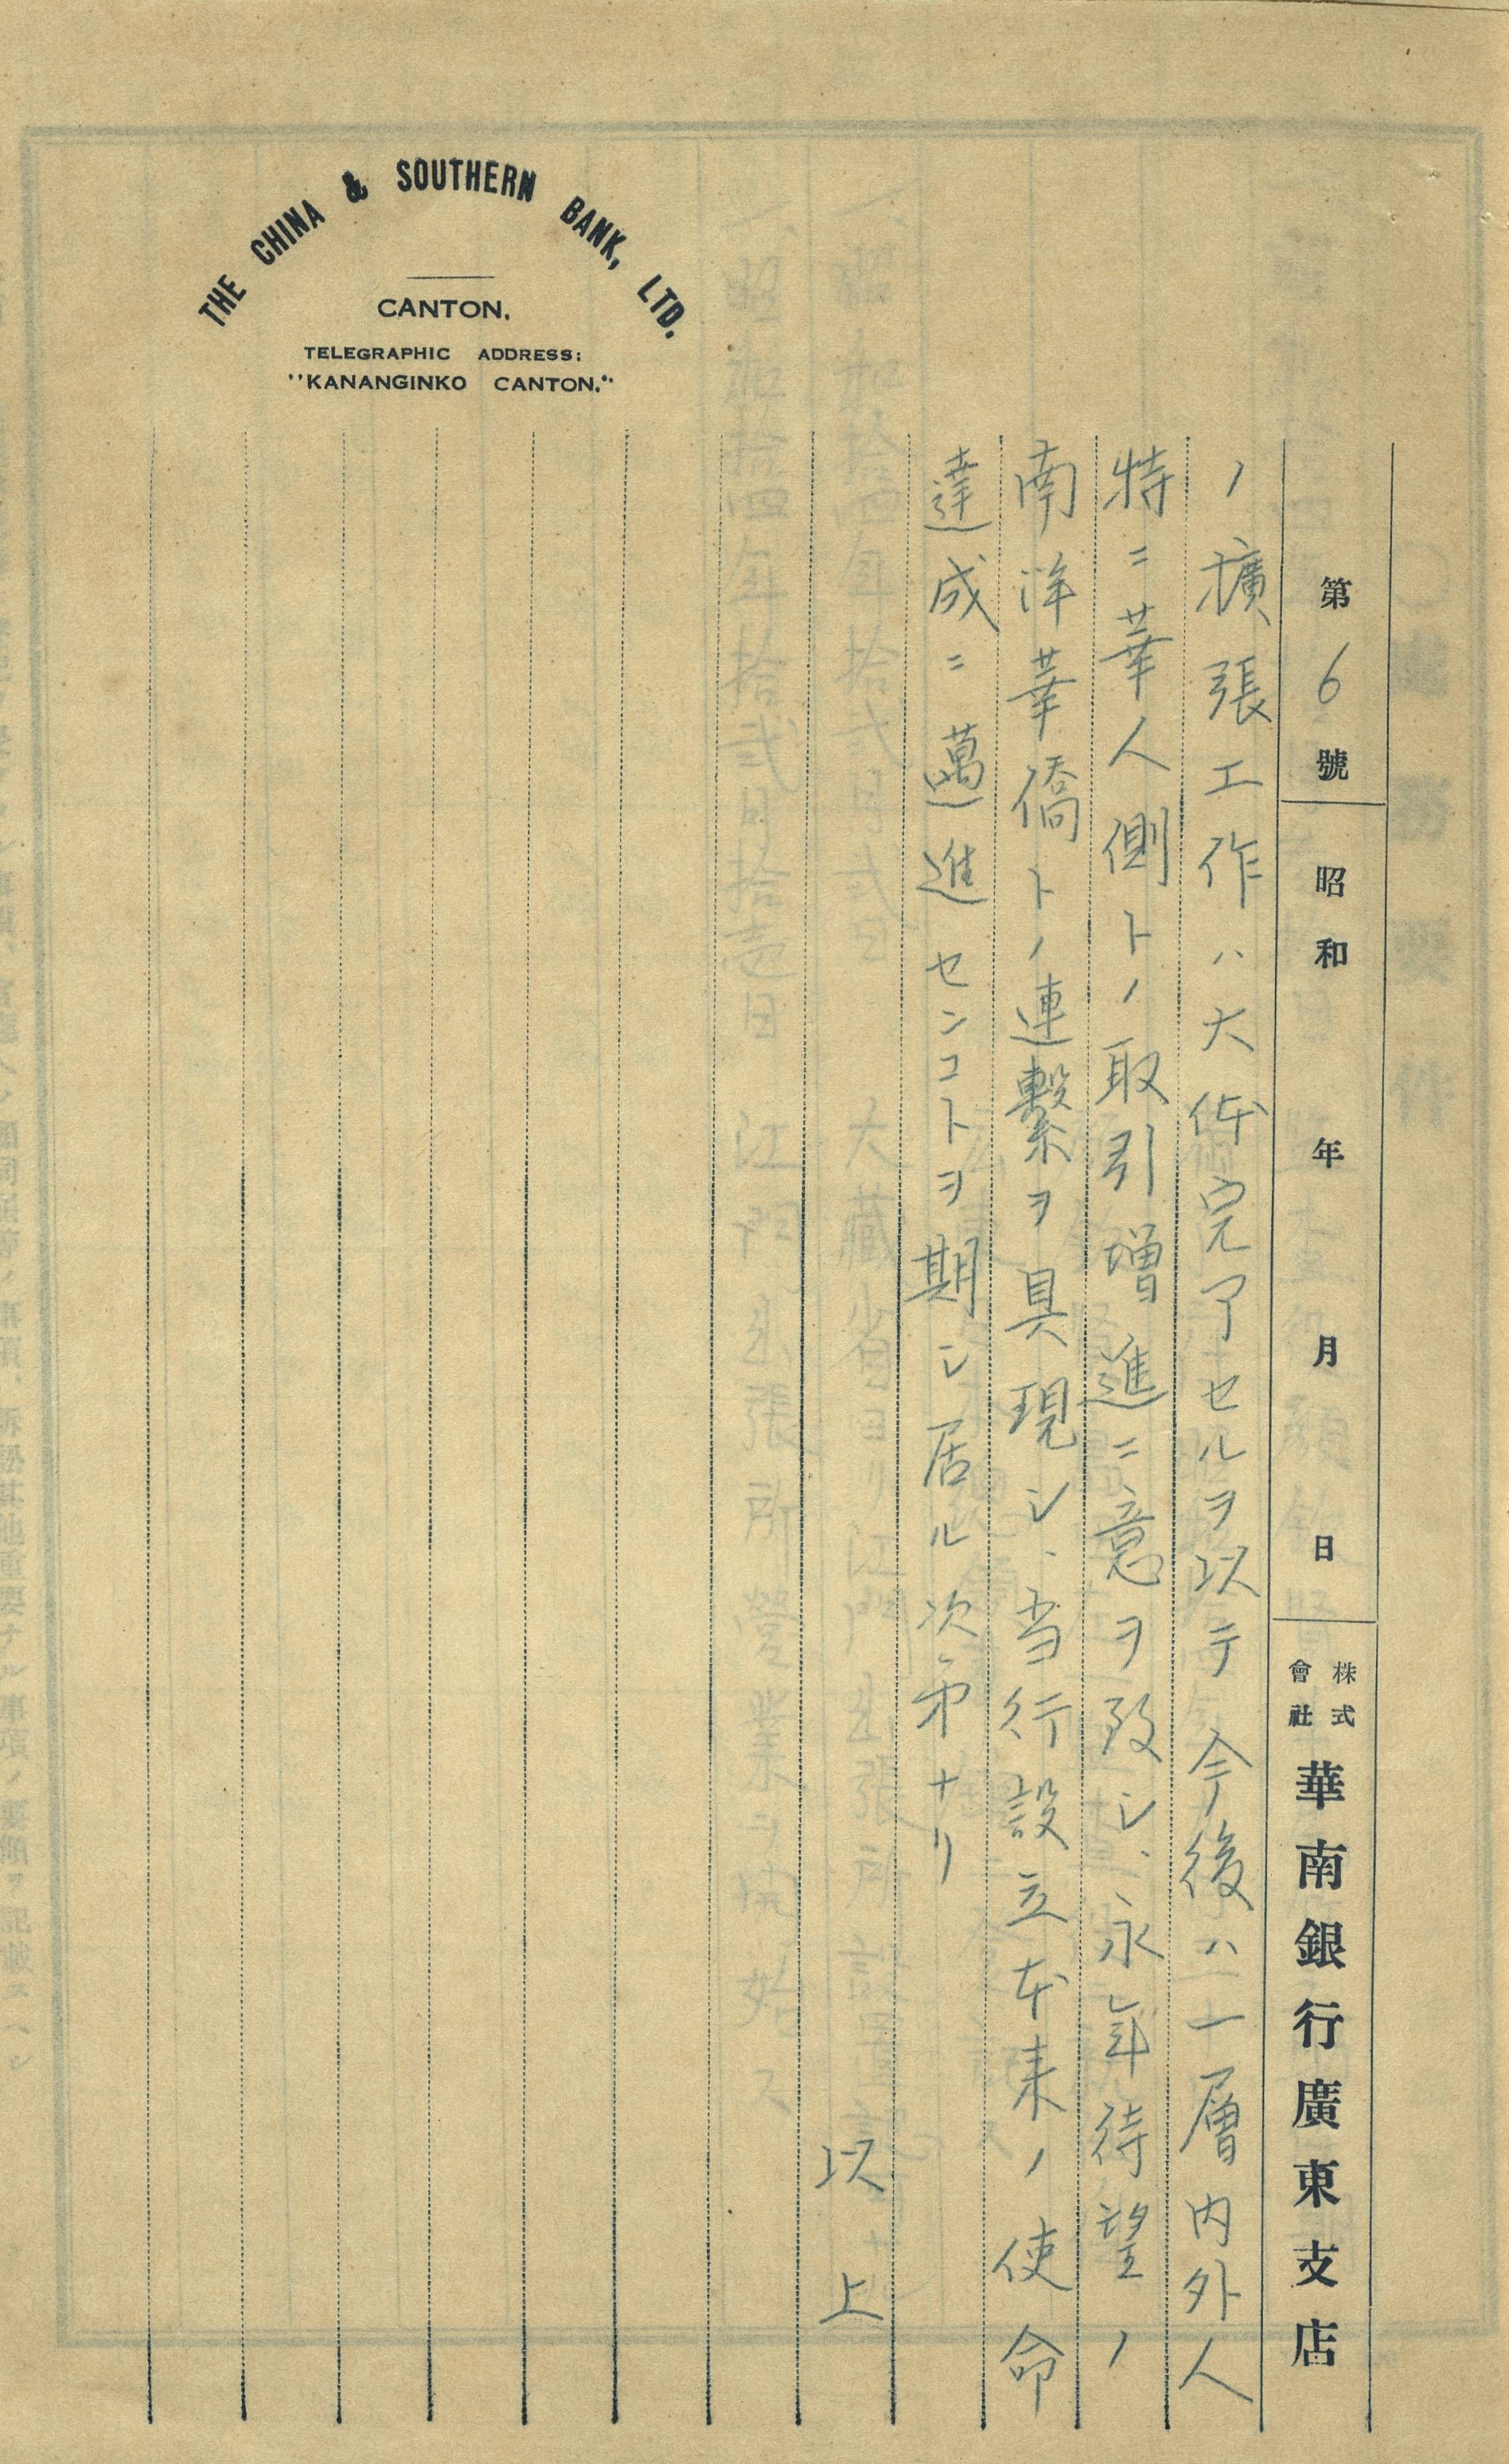 第6號 昭和 年 月 日 株式會社 華南銀行廣東支店
ノ擴張工作ハ大体完了セルヲ以テ今後ハ一層内外人
特ニ華人側トノ取引増進ニ意ヲ致シ、永年待望ノ
南洋華僑トノ連繫ヲ具現シ、当行設立本来ノ使命
達成ニ邁進センコトヲ期シ居ル次第ナリ
以上
THE CHINA & SOUTHERN BANK, LTD.
CANTON.
TELEGRAPHIC ADDRESS:
"KANANGINKO CANTON."